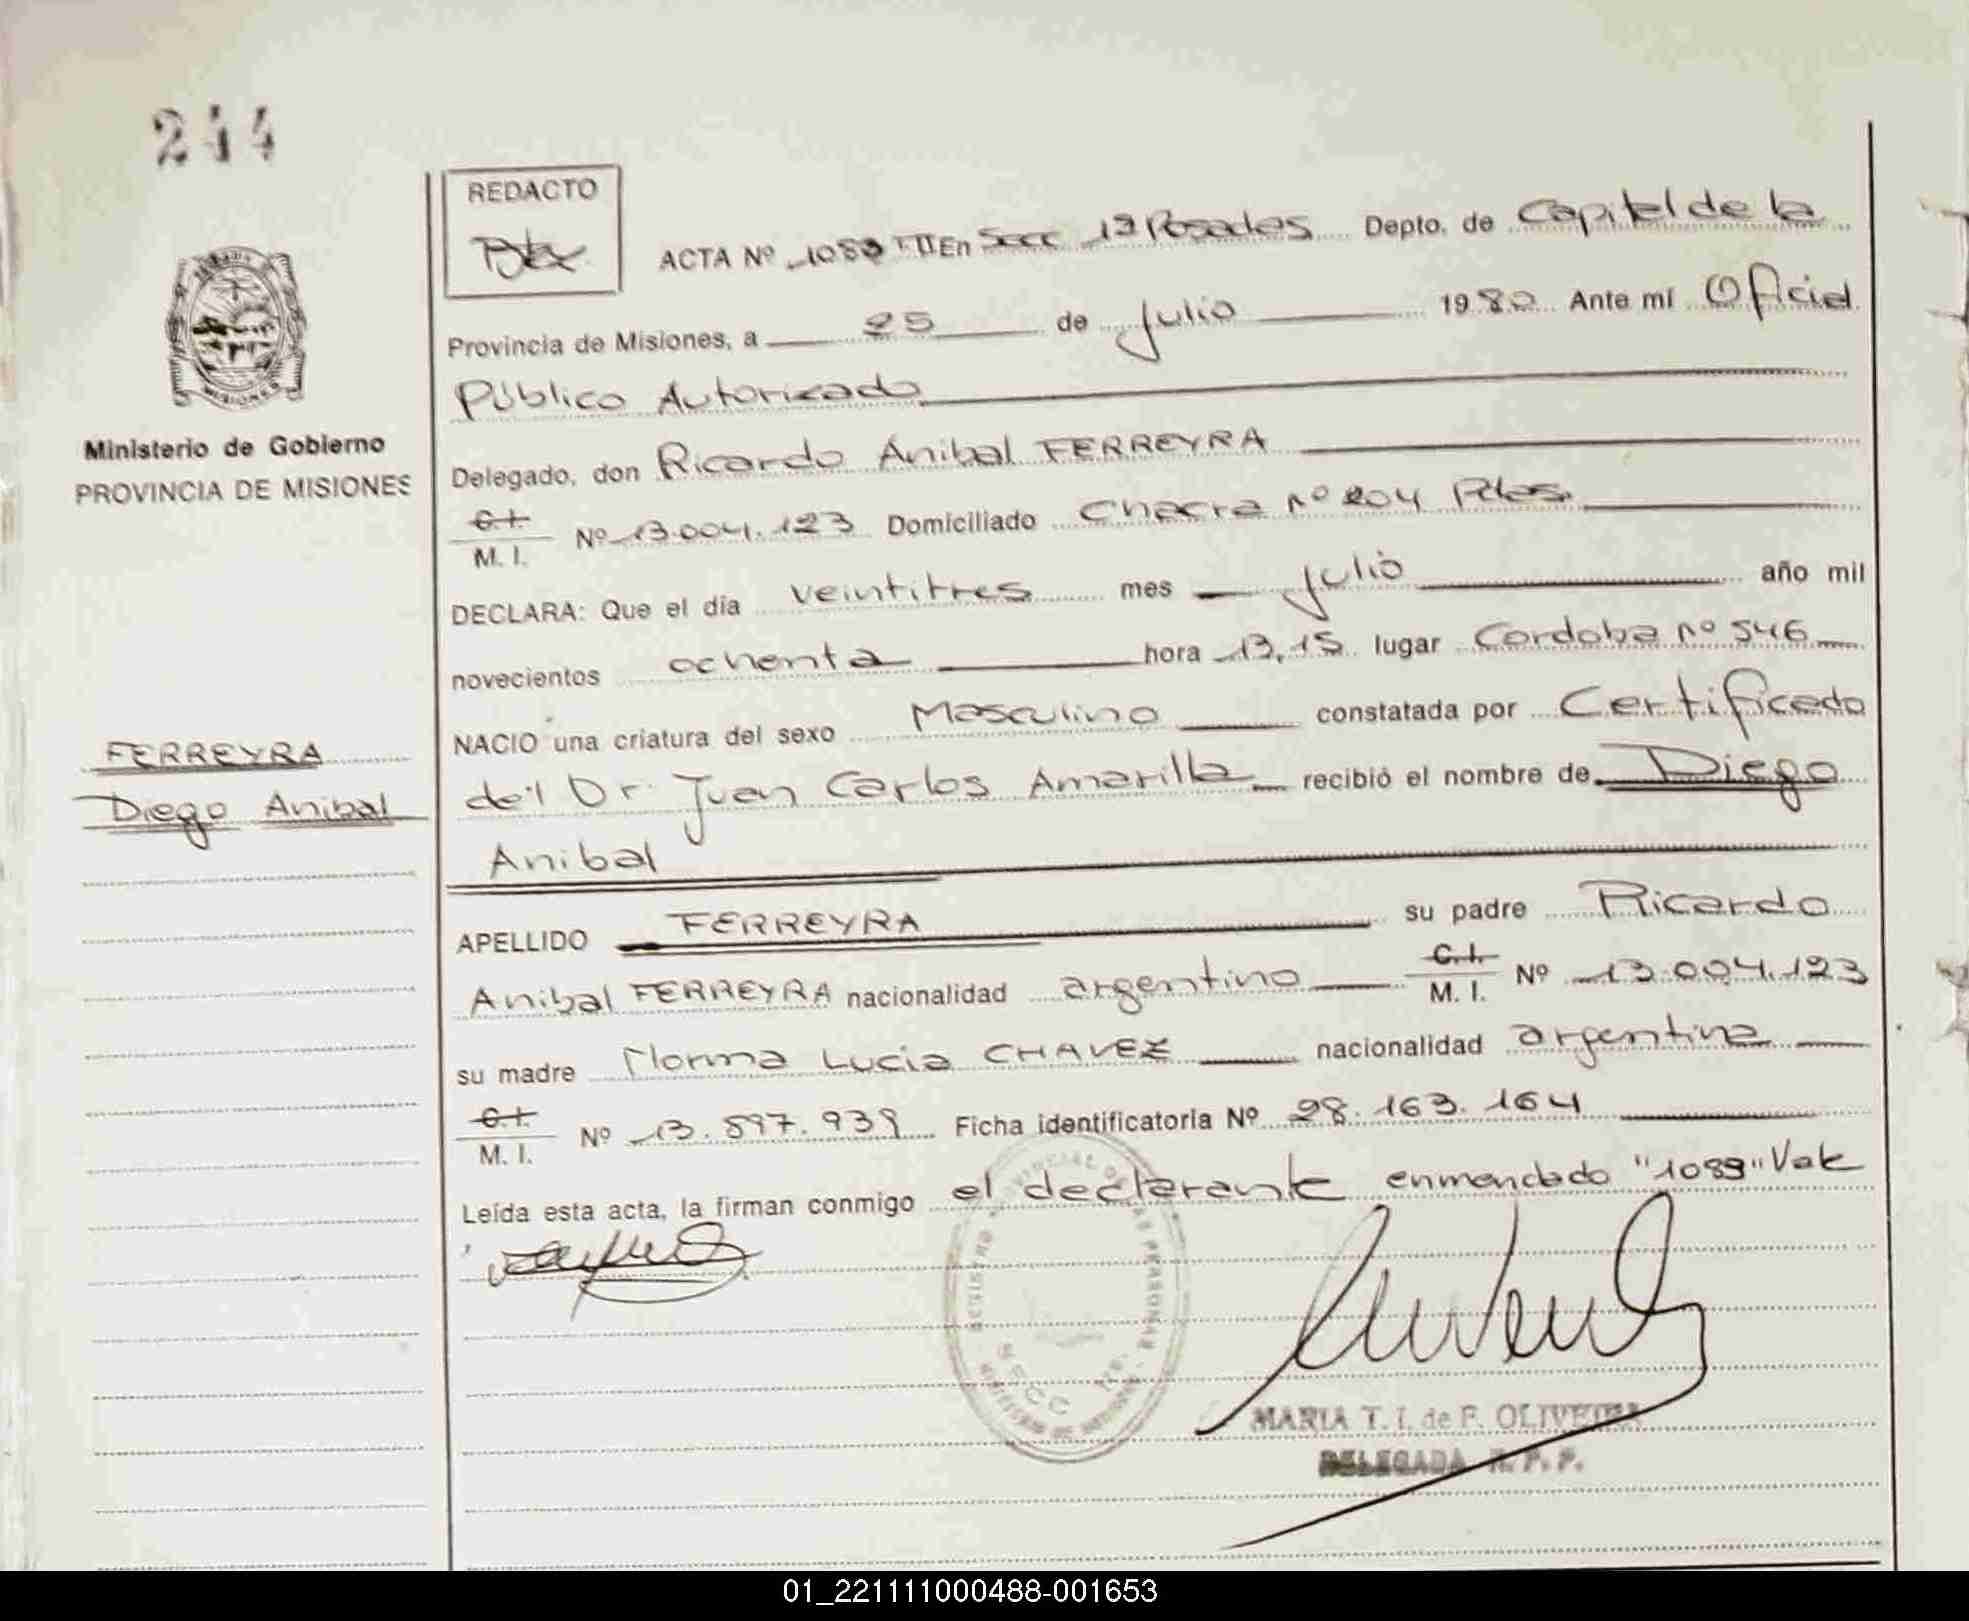 244
REDACTO
ACTA Nº 1089 TII En Secc 1ª Posadas Depto. de Capital de la
Provincia de Misiones, a 25 de julio 1980 Ante mí Oficial
Público Autorizado
Ministerio de Gobierno
PROVINCIA DE MISIONES
Delegado, don Ricardo Anibal FERREYRA
C.I.
M. I. Nº 13.004.123 Domiciliado Chacra Nº 204 Pdas.
DECLARA: Que el día veintitres mes julio año mil
novecientos ochenta hora 13,15 lugar Cordoba Nº 546
NACIO una criatura del sexo Masculino constatada por Certificado
del Dr. Juan Carlos Amarilla recibió el nombre de Diego
Anibal
FERREYRA
Diego Anibal
APELLIDO FERREYRA su padre Ricardo
Anibal FERREYRA nacionalidad argentino C.I.
M. I. Nº 13.004.123
su madre Norma Lucia CHAVEZ nacionalidad argentina
C.I.
M. I. Nº 13.897.939 Ficha identificatoria Nº 28.163.164
Leída esta acta, la firman conmigo el declarante enmendado "1089" Vale
MARIA T. I. de F. OLIVEIRA
DELEGADA R. P. P.
01_221111000488-001653